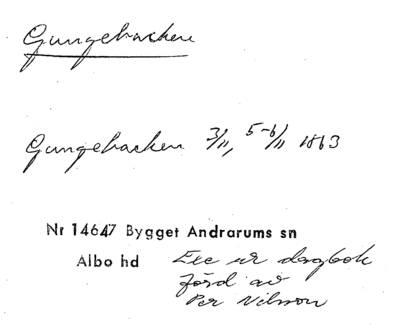 Gungebacken
Gungebacken 3/11, 5-6/11 1863
Nr 14647 Bygget Andrarums sn
Albo hd Exc ur dagbok
förd av
Per Nilsson